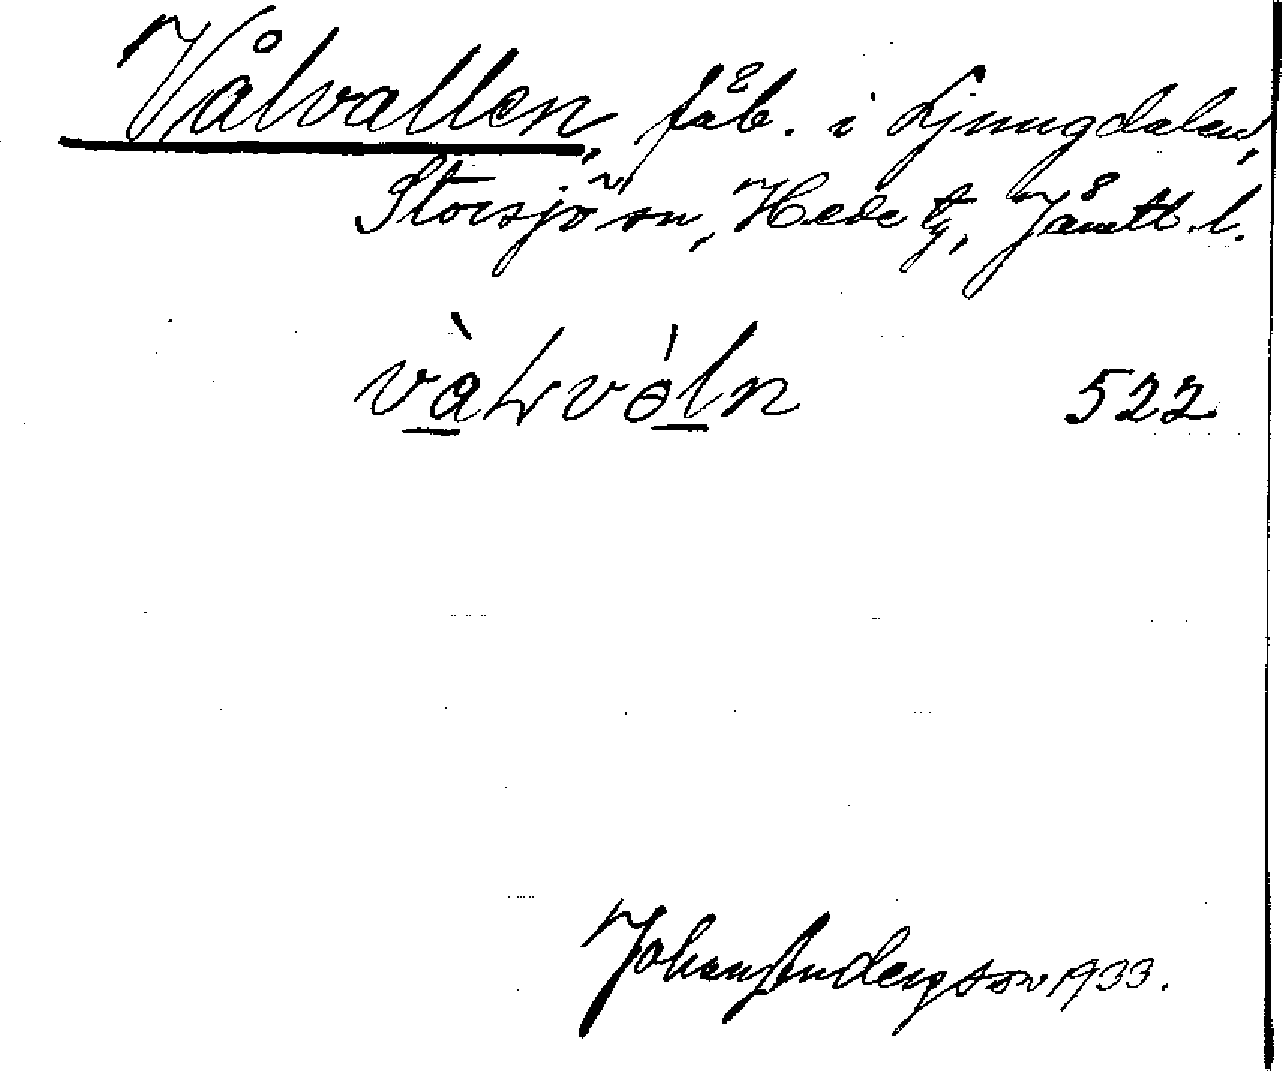 Vålvallen, fåb. i Ljungdalen,
Storsjö sn, Hede tg, Jämtl l.
522
Johan Anderson 1933.